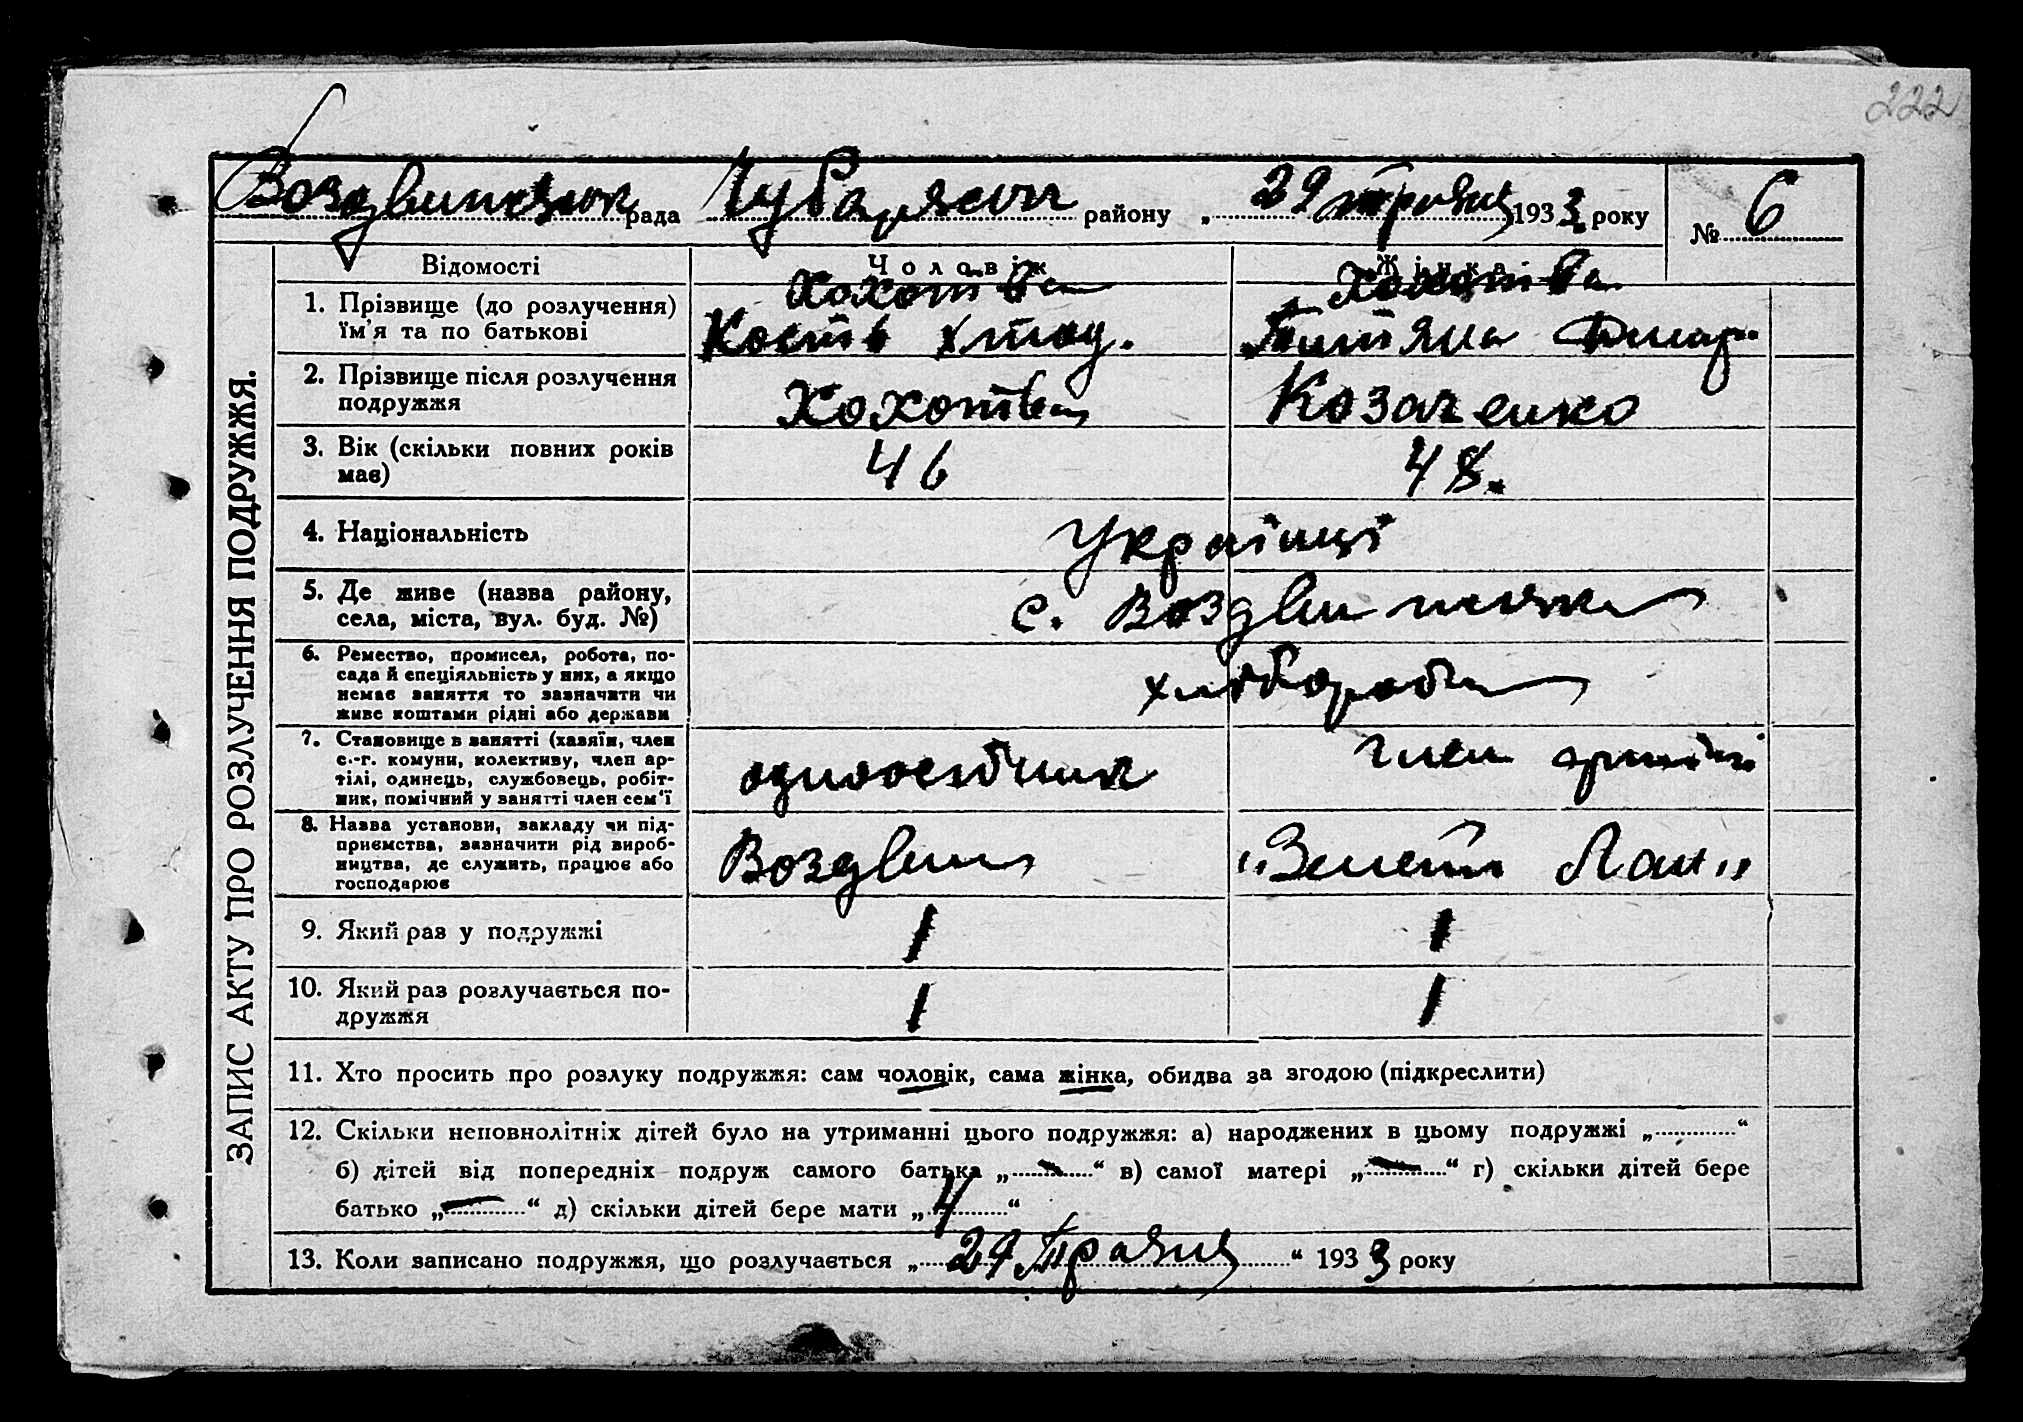 222
рада Чубарівськ району „ 29 травня 1933 року № 6
ЗАПИС АКТУ ПРО РОЗЛУЧЕННЯ ПОДРУЖЖЯ.
Відомості Чоловік Жінка
1. Прізвище (до розлучення)
їм’я та по батькові
Кость
2. Прізвище після розлучення
подружжя
Козаченко
3. Вік (скільки повних років
має)
46 48.
4. Національність
Українці
5. Де живе (назва району,
села, міста, вул. буд. №)
с.
6. Ремество, промисел, робота, по-
сада й спеціяльність у них, а якщо
немає заняття то зазначити чи
живе коштами рідні або держави
хлібороби
7. Становище в занятті (хазяїн, член
с.-г. комуни, колективу, член ар-
тілі, одинець, службовець, робіт-
ник, помічний у занятті член сем’ї
одноосібник член артілі
8. Назва установи, закладу чи під-
приємства, зазначити рід вироб-
ництва, де служить, працює або
господарює
Воздвиж „ Лан „
9. Який раз у подружжі 1 1
10. Який раз розлучається по-
дружжя
1 1
11. Хто просить про розлуку подружжя: сам чоловік, сама жінка, обидва за згодою (підкреслити)
12. Скільки неповнолітніх дітей було на утриманні цього подружжя: а) народжених в цьому подружжі „ “
б) дітей від попередніх подруж самого батька „ — “ в) самої матері „ — “ г) скільки дітей бере
батько „ — “ д) скільки дітей бере мати „ 4 “
13. Коли записано подружжя, що розлучається „ 29 Травня “ 1933 року